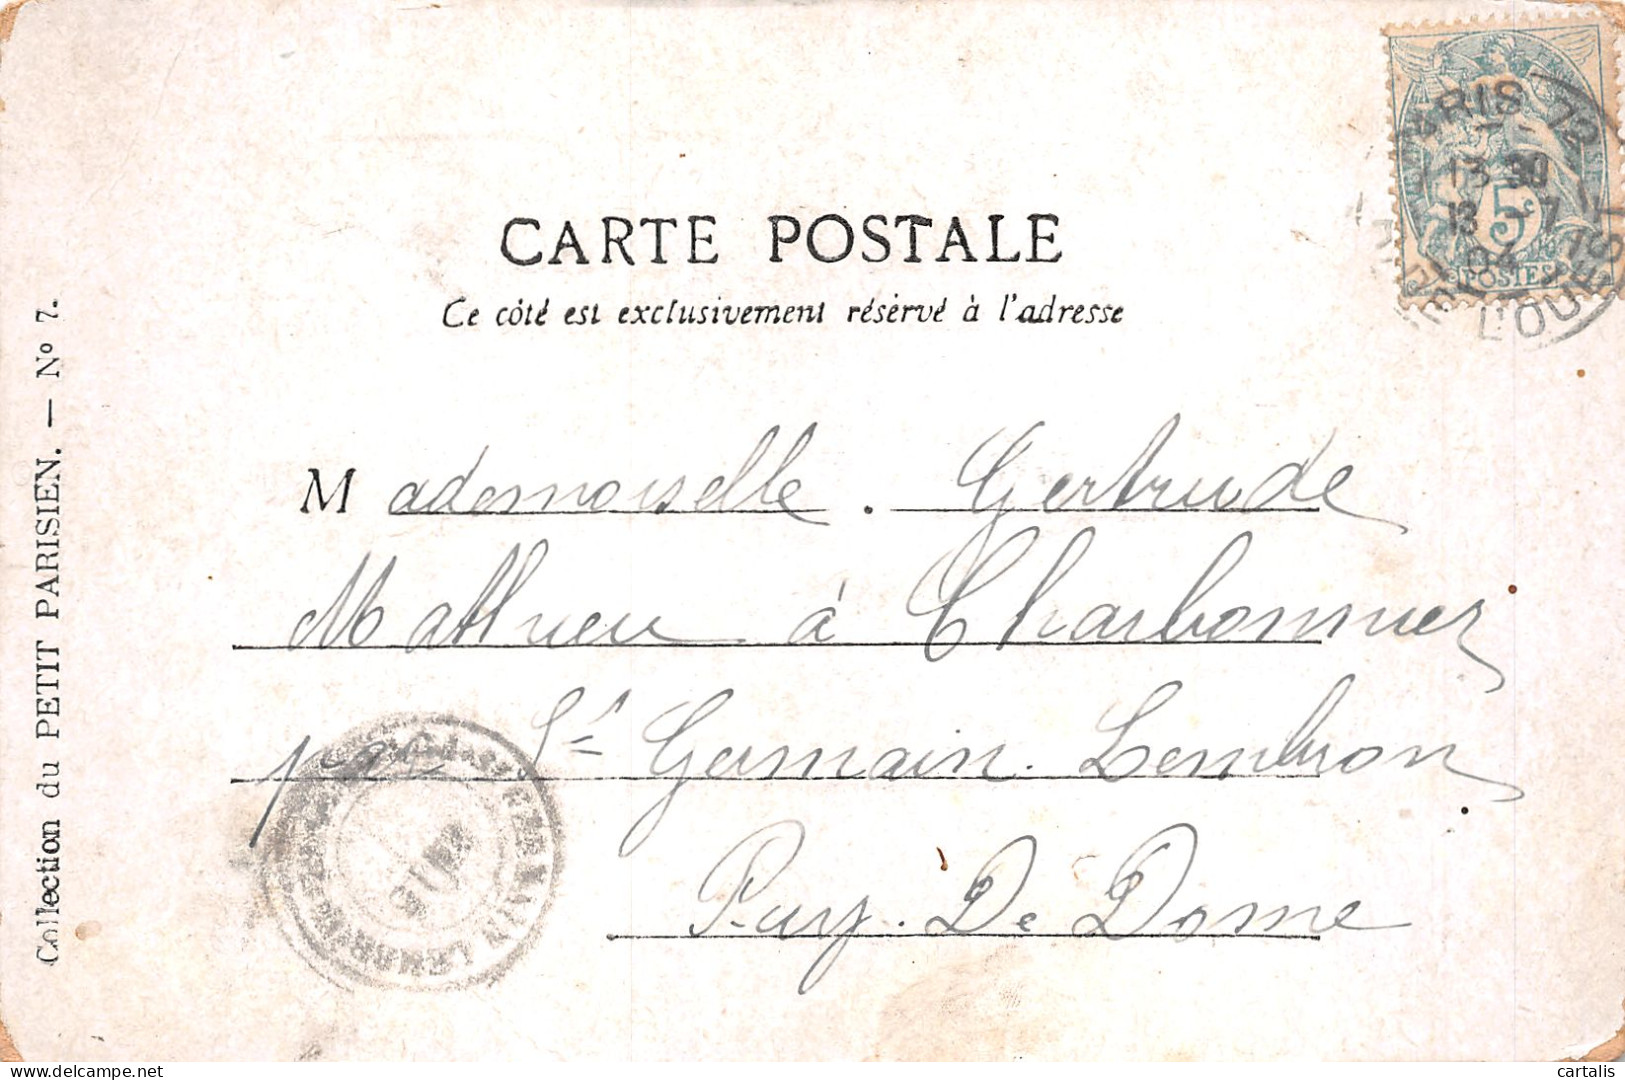 CARTE POSTALE
Ce côté est exclusivement réservé à l'adresse
Mademoiselle. Gertrude
Mathieu à Charbonnier
par St Germain. Lembron
Puy. De Dome
Collection du PETIT PARISIEN. — Nº 7.
PARIS 72
13 30
13 - 7
04
5c
POSTES
cartalis
www.delcampe.net